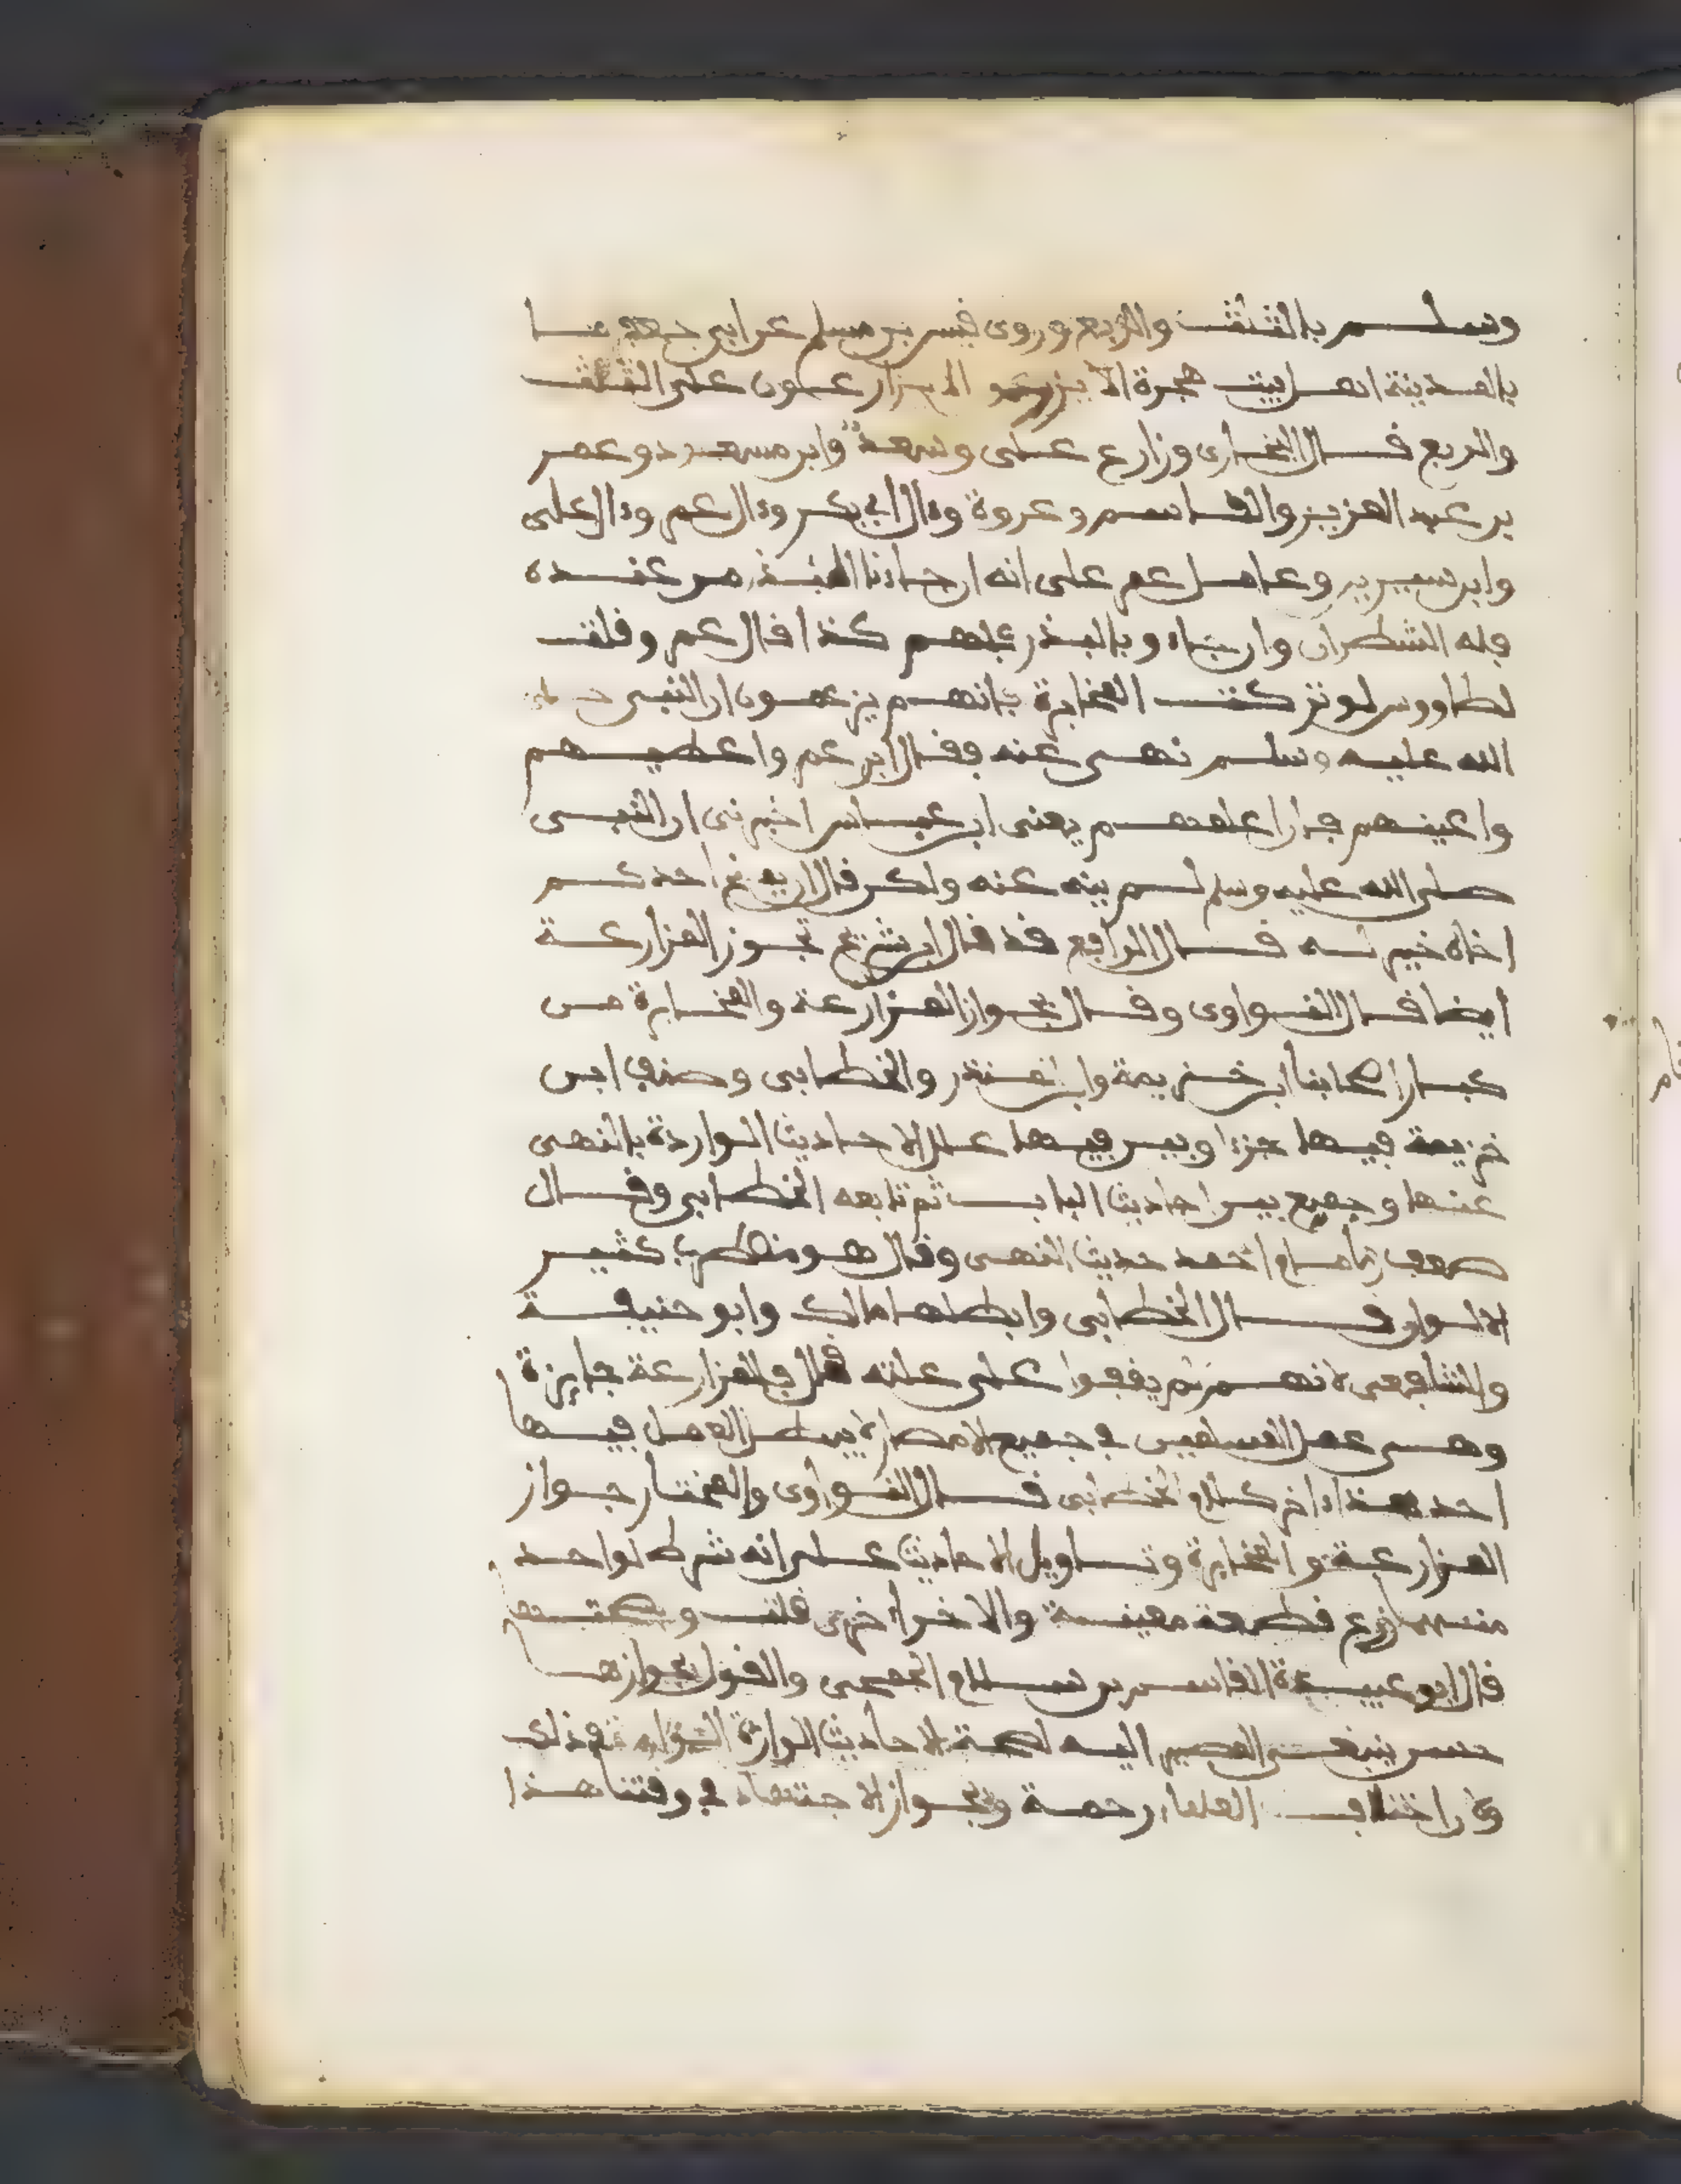 وسلم بالثلث والربع وروى فيس بن مسلم عن ابي جعفر ما
بالمدينة اهل بيت هجرة الا يزرعون على الثلث
والربع فال البخارى وزارع على وسعد وابن مسعود وعمر
بن عبد العزيز والفاسم وعروة وءال ابي بكر وءال عمر وءال على
وابن سيرين وعامل عمر على انه ان جاءنا البذر من عنده
فله الشطران وان جاء و بالبذر فلهم كذا فال عمر وفلت
لطاووس لو تركت المخابرة فانهم يزعمون ان النبى
الله عليه وسلم نهى عنه ففال اى عمر واعطيهم
واعينهم فان اعلمهم يعنى ابن عباس اخبرنى ان النبى
صلى الله عليه وسلم لم ينه عنه ولكن فال ان يمنح احدكم
اخاه خير له فال الرافع فد فال ابن شريح تجوز المزارعة
ايضا فال النواوى وفال بجواز المزارعة والمخابرة من
كبار اصحابنا ابن خزيمة وابن المنذر والخطابى وصنف ابن
خزيمة فيها جزءا وبين فيها علل الاحاديث الواردة بالنهى
عنها وجمع بين احاديث الباب ثم تابعه الخطابى وفال
ضعف احمد حديث النهى وفال هو مضطرب كثير
الالوان فال الخطابى وابطلها مالك وابو حنيفة
والشافعى لانهم لم يففوا على علته فال فالمزارعة جايزة
وهى عمل المسلمين في جميع الامصار لا يبطل العمل فيها
احد هذا ءاخر كلام الخطابى فال النواوى والمختار جواز
المزارعة والمخابرة وتاويل الاحاديث على انه شرط لواحد
منهما زرع فطعة معينة والاخر اخرى فلت
فال ابو عبيدة الفاسم بن سلام الجمحى والفول بجوازها
حسن ينبغى المصير اليه لصحة الاحاديث الواردة فى ذلك
وكان اختلاف العلماء رحمة وبجواز الاجتهاد في وفتنا هذا